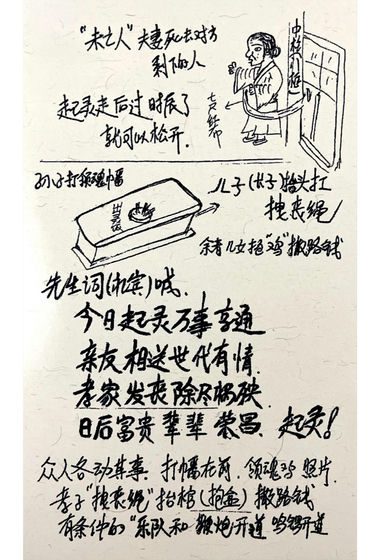 "未亡人"夫妻死去对方
剩下的人
起灵走后过时辰了
就可以松开.
孙子打领魂幡
儿子(长子)抬头扛
拽丧绳
余者儿女抱"鸡"撒路钱
先生词(礼宾)喊.
今日起灵万事亨通
亲友相送世代有情.
孝家发丧除尽祸殃
日后富贵辈辈荣昌. 起灵!
众人各动其事. 打幡在前. 领魂鸡 照片.
孝子"拽丧绳"抬棺(抱盒)撒路钱
有条件的"乐队和 鞭炮"开道 鸣锣开道